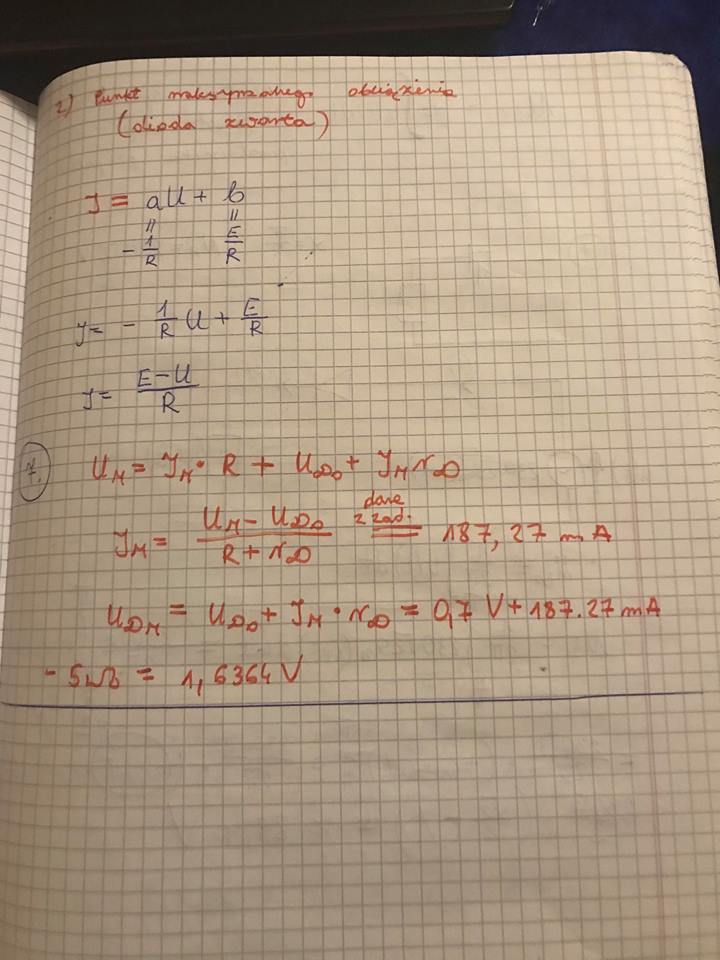 2) Punkt maksymalnego obciążenia
(dioda zwarta)
J = aU + b
= =
-1/R E/R
J = - 1/R U + E/R
J = E-U/R
7. U_M = J_M · R + U_D0 + J_M r_D
J_M = U_M - U_D0 / R + r_D dane z zad. = 187,27 mA
U_DM = U_D0 + J_M · r_D = 0,7 V + 187.27 mA
- 5 Ω = 1,6364 V